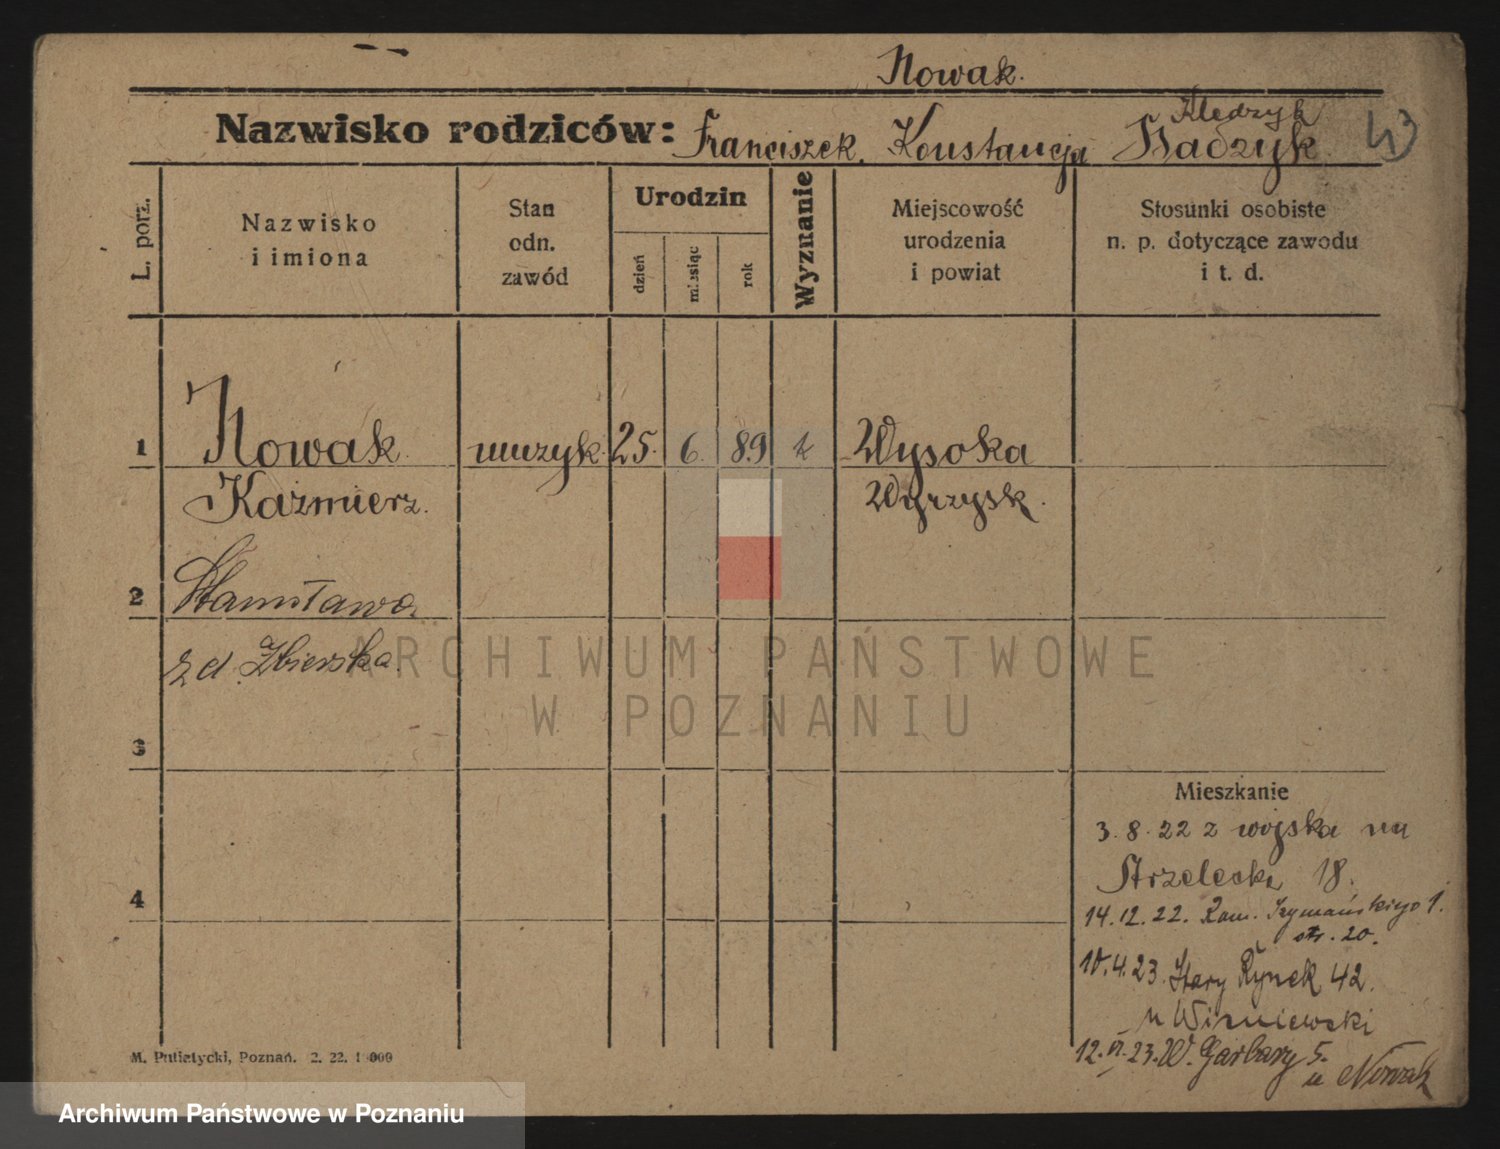 Nowak.
Nazwisko rodziców: Franciszek, Konstancja
L. porz.
Nazwisko i imiona
Stan odn. zawód
Urodzin
dzień
miesiąc
rok
Wyznanie
Miejscowość urodzenia i powiat
Stosunki osobiste n. p. dotyczące zawodu i t. d.
1 Nowak muzyk 25. 6. 89 k Wysoka
Kaźmierz. Wyrzysk.
2 Stanisława
z d. Zbierska.
ARCHIWUM PAŃSTWOWE
W POZNANIU
3
Mieszkanie
3.8.22 z wojska na
Strzelecka 18.
4
14.12.22. Szymańskiego 1.
str. 20.
10.4.23. Stary Rynek 42.
u Wiśniewski
12.VI.23. W. Garbary 5.
u Nowak
M. Putiatycki, Poznań. 2. 22.
Archiwum Państwowe w Poznaniu